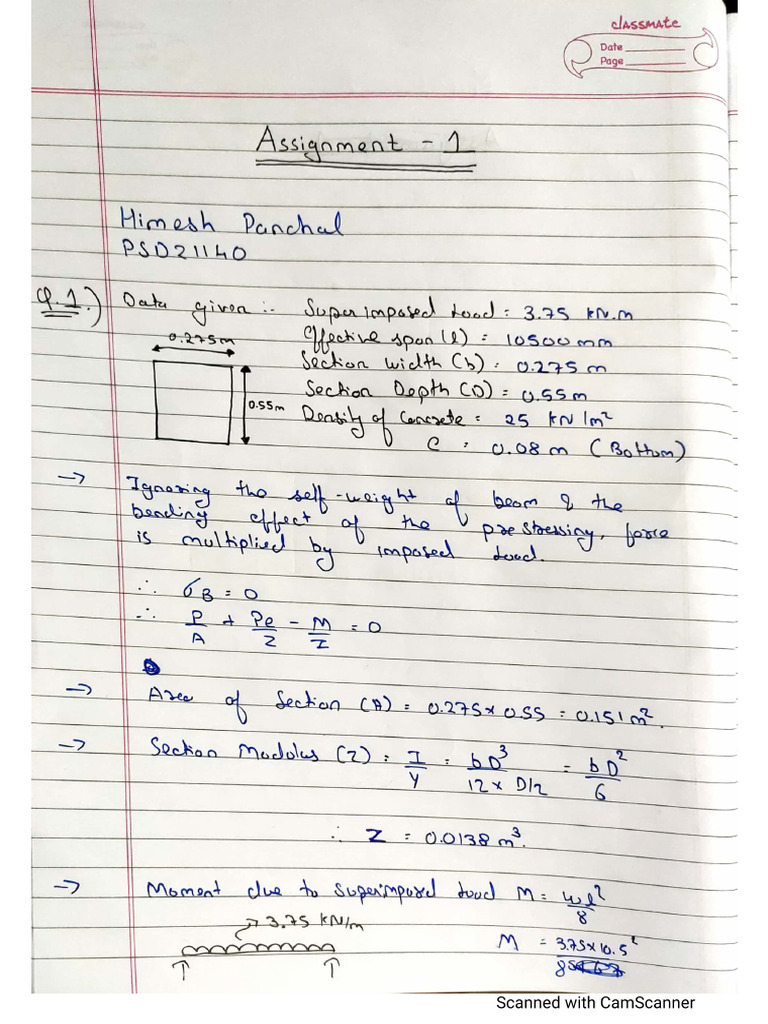 classmate
Date
Page
Assignment - 1
Himesh Panchal
PSD21140
Q.1.) Data given :- Superimposed Load = 3.75 kN.m
Effective span (l) = 10500 mm
0.275m
Section width (b) = 0.275 m
Section Depth (D) = 0.55m
0.55m
Density of Concrete = 25 kN/m²
C = 0.08 m (Bottom)
→ Ignoring the self-weight of beam & the
bending effect of the prestressing, force
is multiplied by imposed load.
∴ σB = 0
∴ P/A + Pe/Z - M/Z = 0
→ Area of Section (A) = 0.275 x 0.55 = 0.151 m².
→ Section Modulus (Z) = I/Y = bD³/12 x D/2 = bD²/6
∴ Z = 0.0138 m³.
→ Moment due to superimposed load M = wl²/8
3.75 kN/m
M = 3.75 x 10.5²/8
Scanned with CamScanner